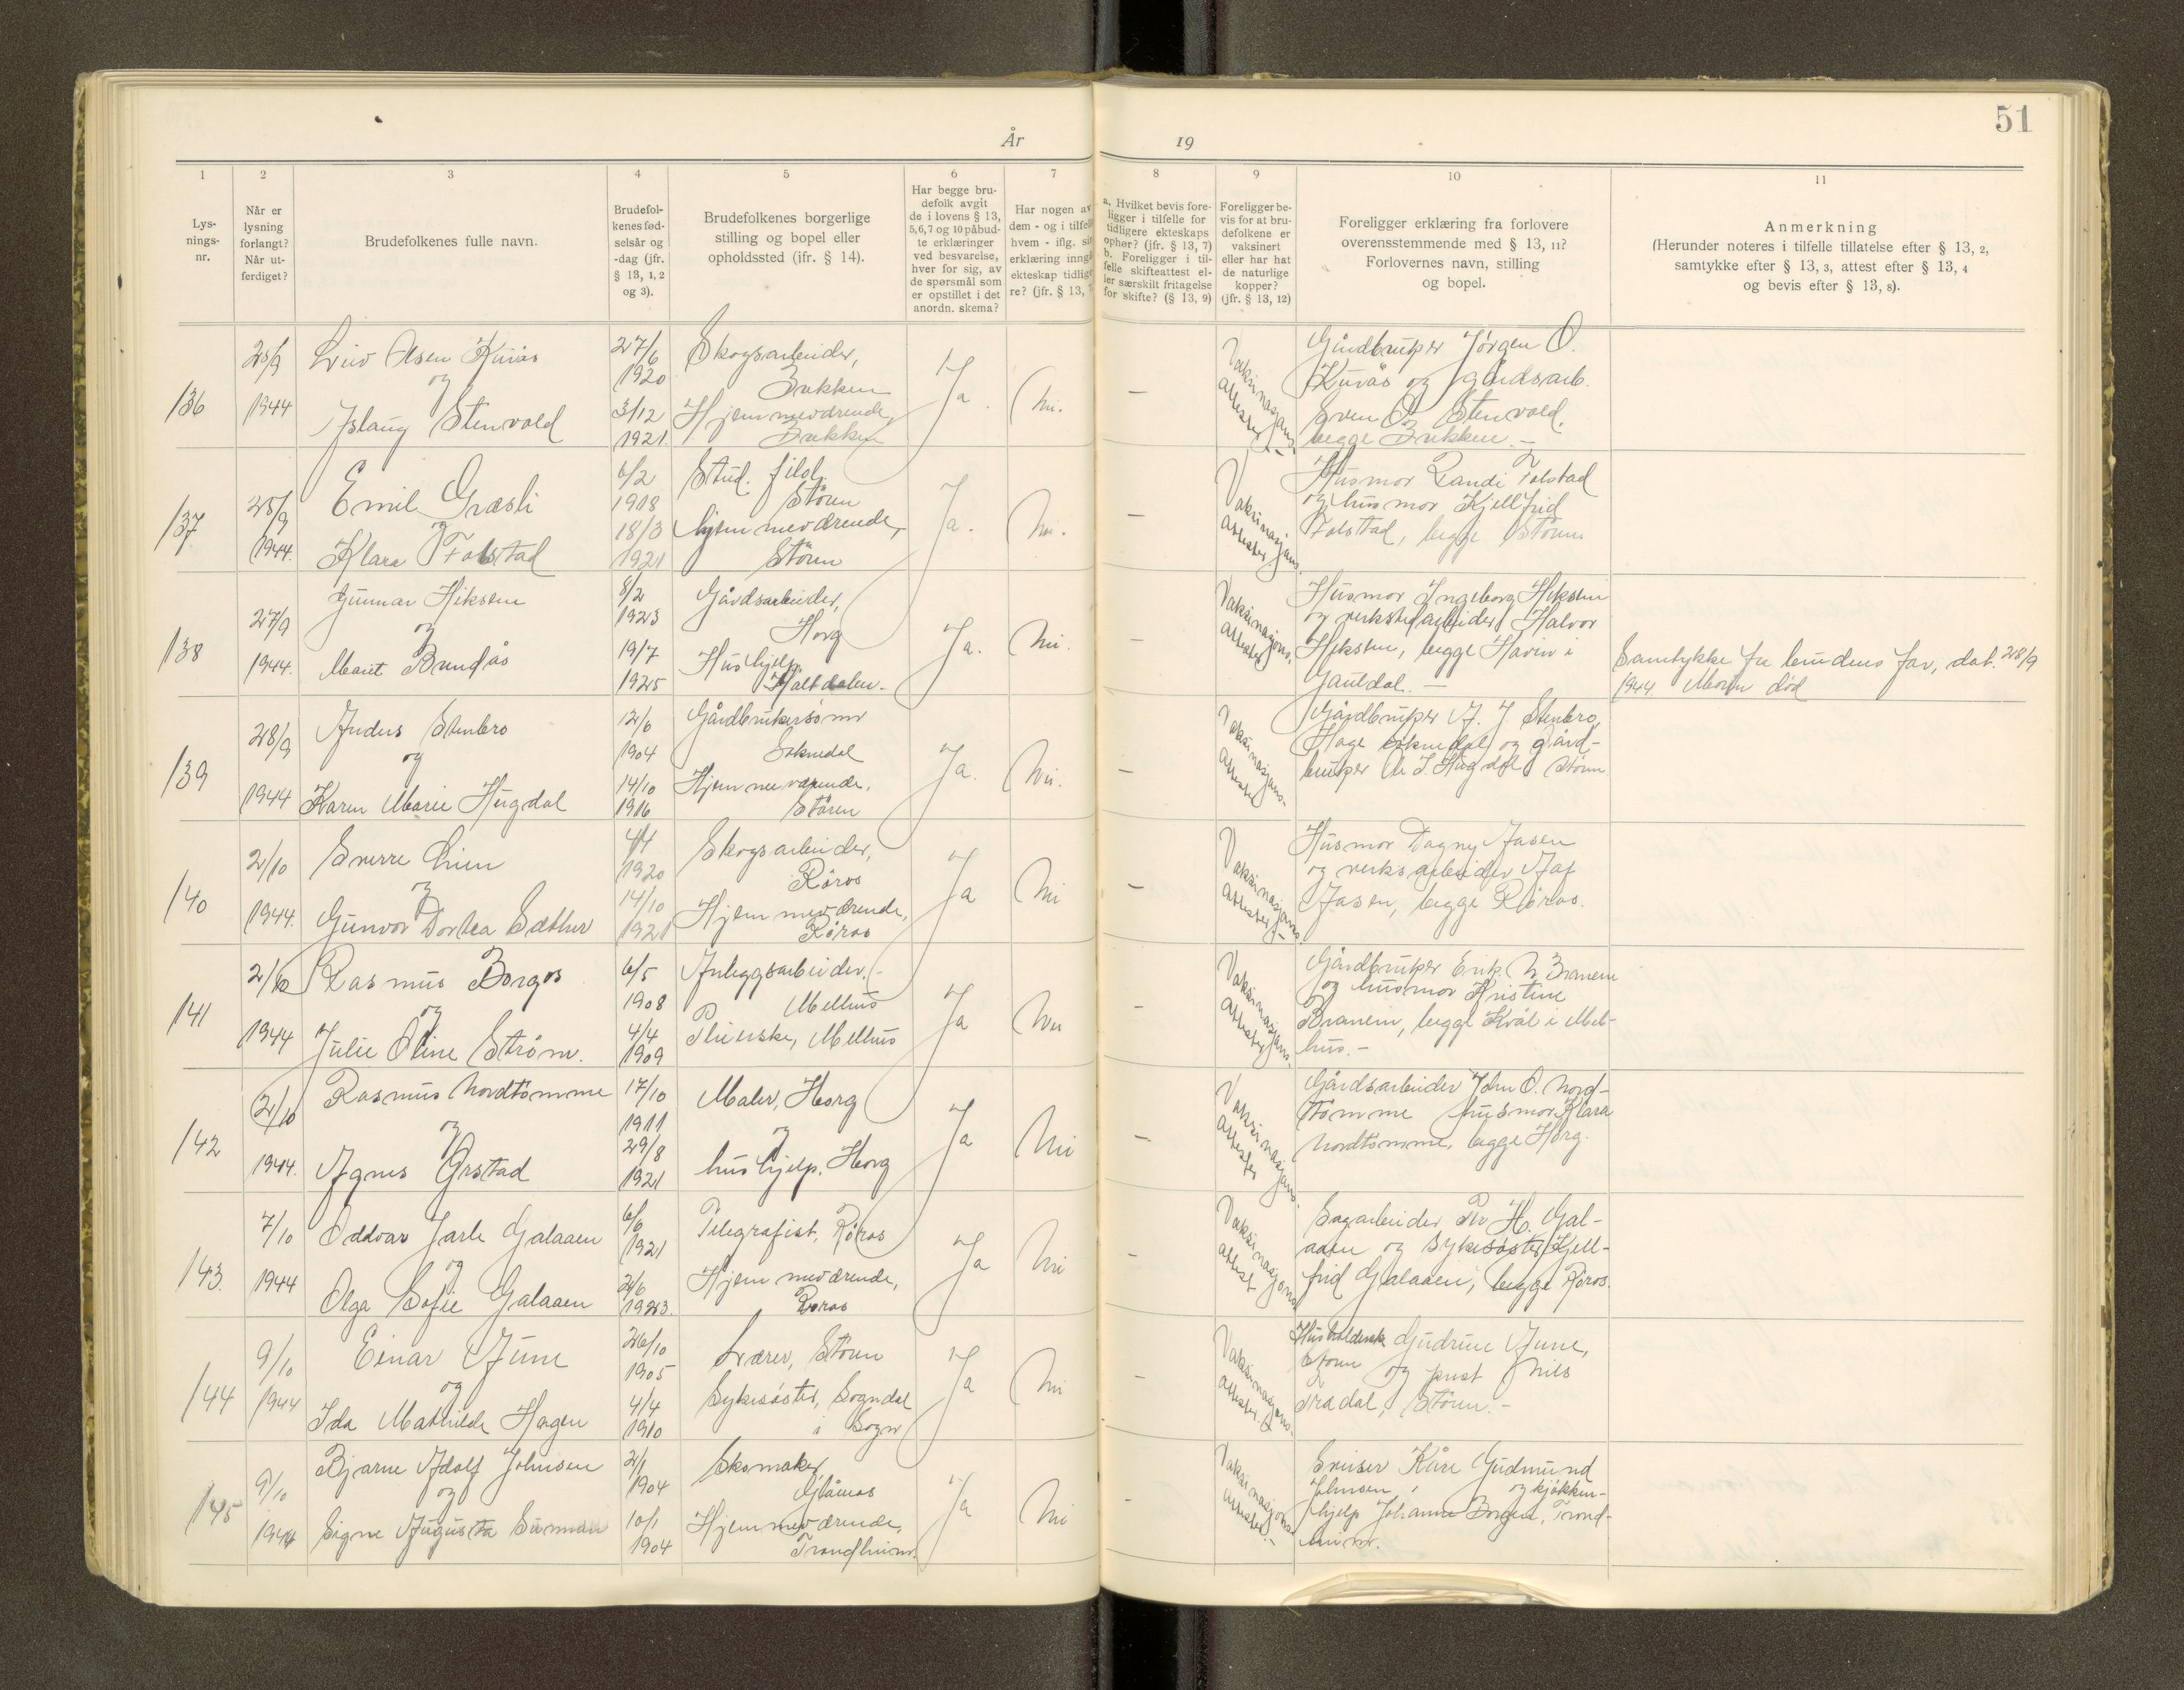 51
År 19
1
Lys-
nings-
nr.
2
Når er
lysning
forlangt?
Når ut-
ferdiget?
3
Brudefolkenes fulle navn.
4
Brudefol-
kenes fød-
selsår og
-dag (jfr.
§ 13, 1, 2
og 3).
5
Brudefolkenes borgerlige
stilling og bopel eller
opholdssted (jfr. § 14).
6
Har begge bru-
defolk avgit
de i lovens § 13,
5,6,7 og 10 påbud-
te erklæringer
ved besvarelse,
hver for sig, av
de spørsmål som
er opstillet i det
anordn. skema?
7
Har nogen av
dem - og i tilfelle
hvem - iflg. sin
erklæring inngå
ekteskap tidlige
re? (jfr. § 13,
8
a. Hvilket bevis fore-
ligger i tilfelle for
tidligere ekteskaps
ophør? (jfr. § 13, 7)
b. Foreligger i til-
felle skifteattest el-
ler særskilt fritagelse
for skifte? (§ 13, 9)
9
Foreligger be-
vis for at bru-
defolkene er
vaksinert
eller har hat
de naturlige
kopper?
(jfr. § 13, 12)
10
Foreligger erklæring fra forlovere
overensstemmende med § 13, 11?
Forlovernes navn, stilling
og bopel.
11
Anmerkning
(Herunder noteres i tilfelle tillatelse efter § 13, 2,
samtykke efter § 13, 3, attest efter § 13, 4
og bevis efter § 13, 8).
136
25/9
1944
Olsen Kuvås
og
Aslaug Stenvold
27/6
1920
3/12
1921
Skogsarbeider,
Brekken
Hjemmeværende,
Brekken
Ja.
Nei.
—
Vaksinasjons-
attester
Gårdbruker Jørgen O.
Kuvås og gårdsarb.
Sven O. Stenvold,
begge Brekken. —
137
25/9
1944.
Emil Græsli
og
Klara Folstad
6/2
1918
18/3
1921
Stud. filol.
Støren
hjemmeværende,
Støren
Ja.
Nei.
—
Vaksinasjons-
attester
Husmor Randi Folstad
og husmor Kjellfrid
Folstad, begge Støren
138
27/9
1944.
Gunnar Hiksen
og
Marit Brendås
8/2
1923
19/7
1925
Gårdsarbeider,
Horg
Hushjelp,
Haltdalen.
Ja.
Nei.
—
Vaksinasjons-
attester
Husmor Ingeborg Heksem
og verkstedarbeider Halvor
Heksem, begge Hovin i
Gauldal. —
Samtykke fra brudens far, dat. 28/9
1944. Moren død
139
28/9
1944
Anders Stenbro
og
Karen Marie Hugdal
12/6
1904
14/10
1916
Gårdbrukersønn
Soknedal
Hjemmeværende,
Støren
Ja.
Nei.
—
Vaksinasjons-
attester
Gårdbruker A. J. Stenbro,
Hage Soknedal og gård-
bruker J. Hugdal Støren
140
2/10
1944.
Sverre Lien
og
Gunvor Dortea Sæther
4/4
1920
14/10
1921
Skogsarbeider,
Røros
Hjemmeværende,
Røros
Ja
Nei
—
Vaksinasjons-
attester
Husmor Dagny Aasen
og verksarbeider
Aasen, begge Røros.
141
2/10
1944
Rasmus Borgos
og
Julie Oline Strøm.
6/5
1908
4/4
1909
Anleggsarbeider,
Melhus
Pleierske, Melhus
Ja
Nei
—
Vaksinasjons-
attester
Gårdbruker Erik N. Branem
og husmor Kristine
Branem, begge Kvål i Mel-
hus. —
142
2/10
1944.
Rasmus Nordtømme
og
Agnes Grstad
17/10
1911
29/8
1921
Maler, Horg
og
hushjelp, Horg
Ja
Nei
—
Vaksinasjons-
attester
Gårdsarbeider John O. Nord-
tømme husmor Klara
Nordtømme, begge Horg.
143.
7/10
1944
Oddvar Jarle Galaaen
og
Olga Sofie Galaaen
6/6
1921
2/6
1923.
Telegrafist, Røros
Hjemmeværende,
Røros
Ja
Nei
—
Vaksinasjons-
attest
Sagarbeider Per H. Gal-
aaen og sykesøster Kjell-
frid Galaaen, begge Røros.
144
9/10
1944
Einar Aune
og
Ida Mathilde Hagen
26/10
1905
4/4
1910
Lærer, Støren
Sykesøster, Sogndal
i Sogn
Ja
Nei
—
Vaksinasjons-
attester.
Husholderske Gudrun Aune,
Støren og prest Nils
Støren. —
145
9/10
1944
Bjarne Adolf Johnsen
og
Signe Augusta
2/1
1904
10/1
1904
Skomaker,
Glåmos
Hjemmeværende,
Trondheim.
Ja
Nei
—
Vaksinasjons-
attester. —
Kåre Gudmund
Johnsen, og kjøkken-
hjelp Johanne Borgen, Trond-
heim.